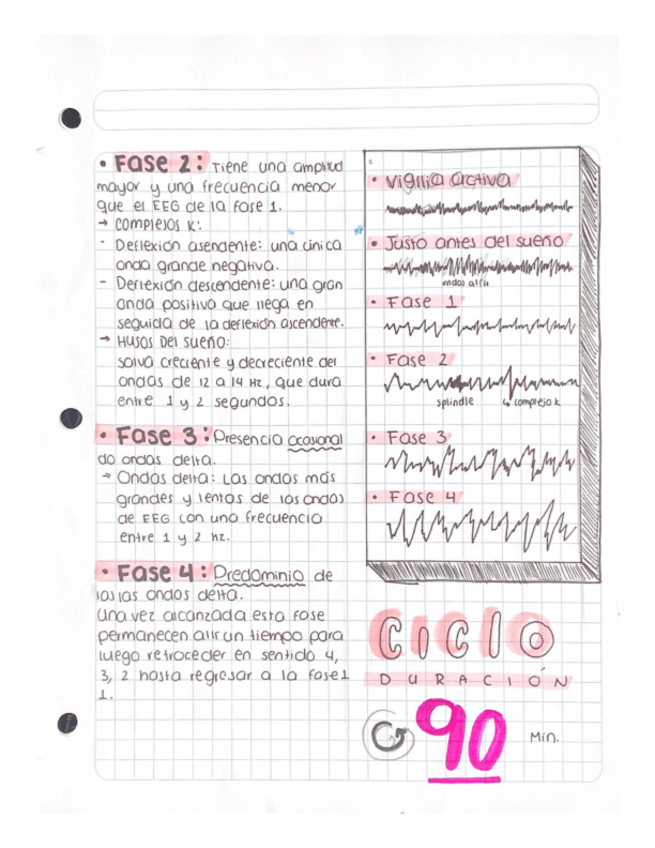 • Fase 2: Tiene una amplitud
mayor y una frecuencia menor
que el EEG de la fase 1.
→ complejos K:
- Deflexión asendente: una única
onda grande negativa.
- Deflexión descendente: una gran
onda positiva que llega en
seguida de la deflexión ascendente.
→ Husos del sueño:
salva creciente y decreciente del
ondas de 12 a 14 Hz, que dura
entre 1 y 2 segundos.
• Fase 3: Presencia ocasional
do ondas delta.
→ Ondas delta: Las ondas más
grandes y lentas de las ondas
de EEG con una frecuencia
entre 1 y 2 Hz.
• Fase 4: Predominio de
las las ondas delta.
Una vez alcanzada esta fase
permanecen allí un tiempo para
luego retroceder en sentido 4,
3, 2 hasta regresar a la fase 1
1.
• Vigilia activa
• Justo antes del sueño
ondas alfa
• Fase 1
• Fase 2
spindle
↳ complejo k
• Fase 3
• Fase 4
Ciclo
DURACIÓN
90 Min.